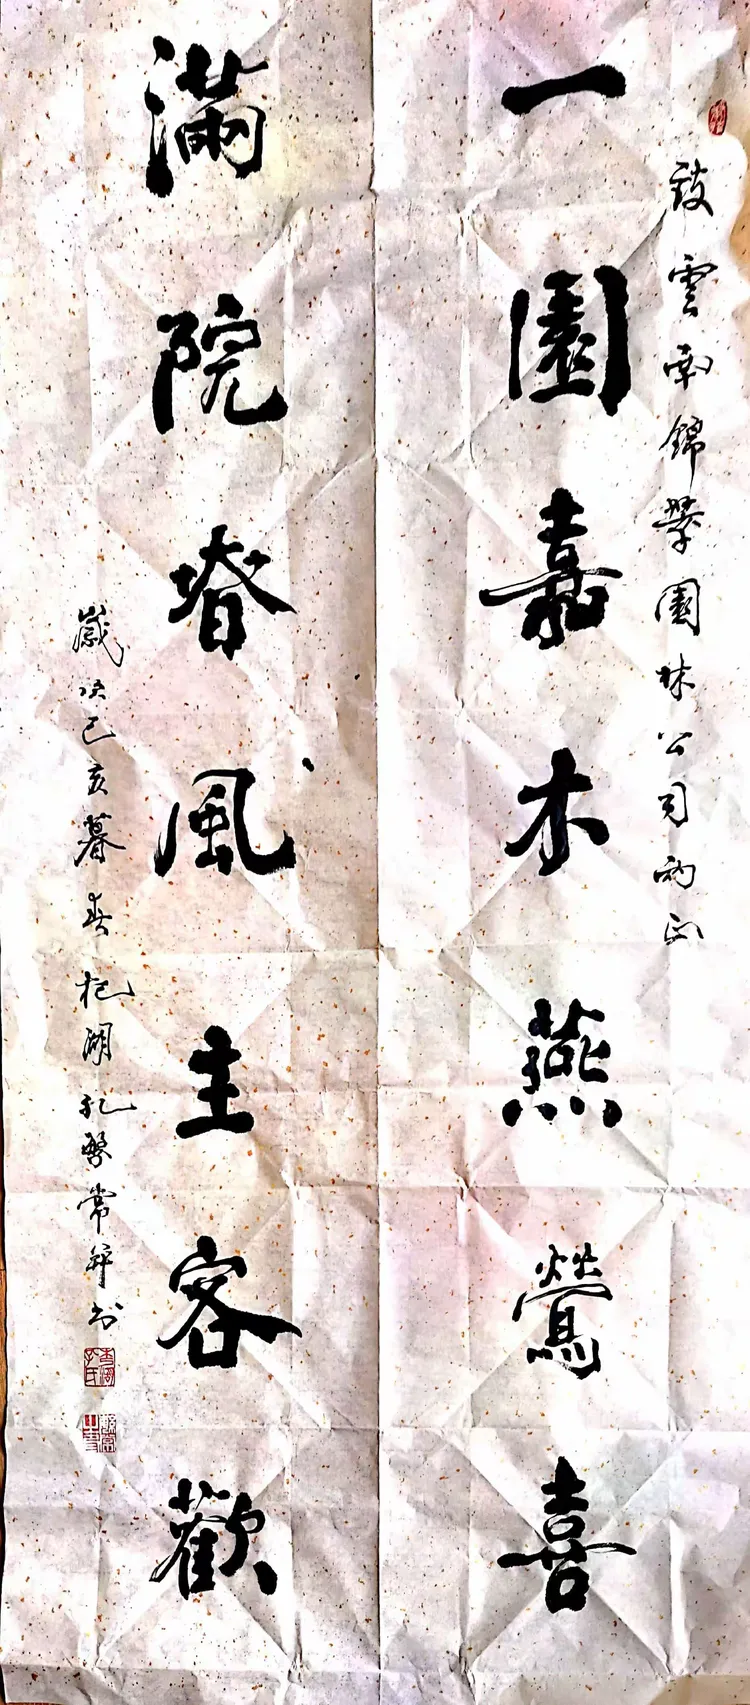 致雲南錦園林公司正
一園嘉木燕鶯喜
滿院春風主客歡
歲次己亥暮春杞湖孔繁常并书